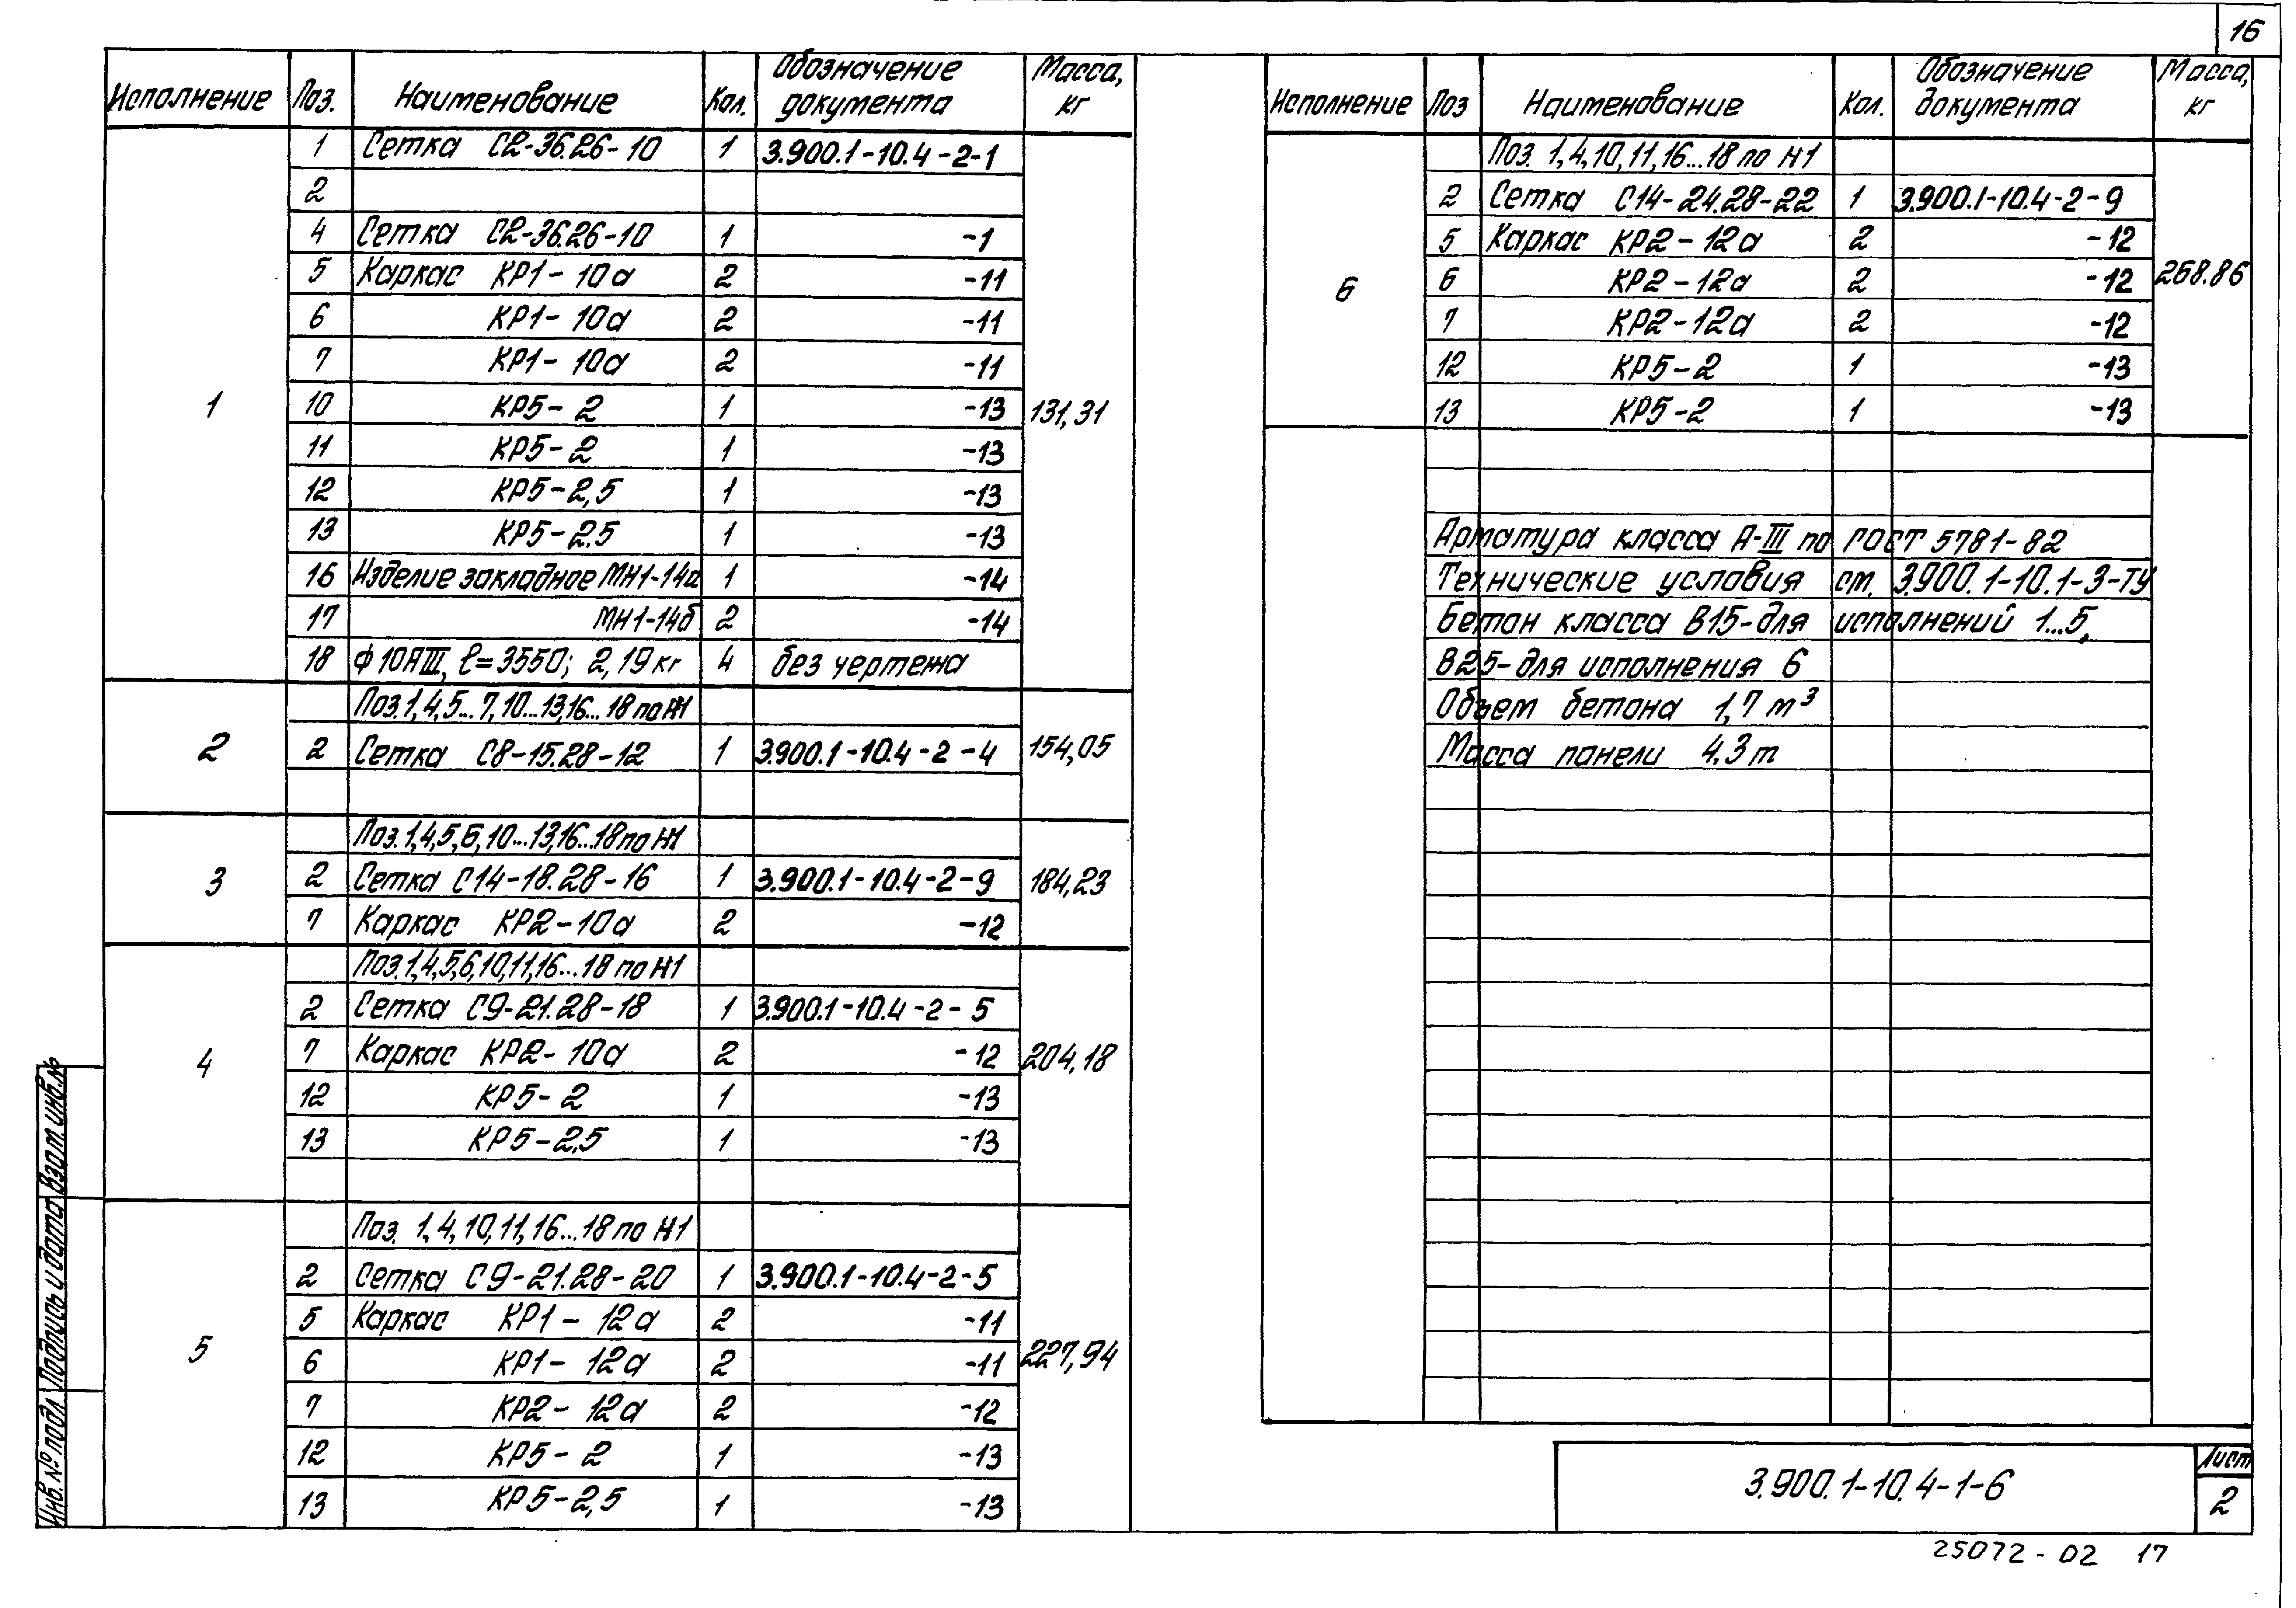 16
Исполнение Поз. Наименование Кол. Обозначение документа Масса, кг
1 131,31
1 Сетка С2-36.26-10 1 3.900.1-10.4-2-1
2
4 Сетка С2-36.26-10 1 -1
5 Каркас КР1-10а 2 -11
6 КР1-10а 2 -11
7 КР1-10а 2 -11
10 КР5-2 1 -13
11 КР5-2 1 -13
12 КР5-2,5 1 -13
13 КР5-2.5 1 -13
16 Изделие закладное МН1-14а 1 -14
17 МН1-14б 2 -14
18 Ф10АIII, ℓ=3550; 2,19кг 4 без чертежа
2 154,05
Поз.1,4,5...7,10...13,16...18 по Н1
2 Сетка С8-15.28-12 1 3.900.1-10.4-2-4
3 184,23
Поз.1,4,5,6,10...13,16...18 по Н1
2 Сетка С14-18.28-16 1 3.900.1-10.4-2-9
7 Каркас КР2-10а 2 -12
4 204,18
Поз.1,4,5,6,10,11,16...18 по Н1
2 Сетка С9-21.28-18 1 3.900.1-10.4-2-5
7 Каркас КР2-10а 2 -12
12 КР5-2 1 -13
13 КР5-2,5 1 -13
5 227,94
Поз. 1,4,10,11,16...18 по Н1
2 Сетка С9-21.28-20 1 3.900.1-10.4-2-5
5 Каркас КР1-12а 2 -11
6 КР1-12а 2 -11
7 КР2-12а 2 -12
12 КР5-2 1 -13
13 КР5-2,5 1 -13
Исполнение Поз Наименование Кол. Обозначение документа Масса, кг
6 268.86
Поз. 1,4,10,11,16...18 по Н1
2 Сетка С14-24.28-22 1 3.900.1-10.4-2-9
5 Каркас КР2-12а 2 -12
6 КР2-12а 2 -12
7 КР2-12а 2 -12
12 КР5-2 1 -13
13 КР5-2 1 -13
Арматура класса А-III по ГОСТ 5781-82
Технические условия см. 3.900.1-10.1-3-ТУ
Бетон класса В15-для исполнений 1...5,
В25-для исполнения 6
Объем бетона 1,7 м³
Масса панели 4.3т
Инв. № подл Подпись и дата Взам. инв. №
3.900.1-10.4-1-6
Лист
2
25072-02 17